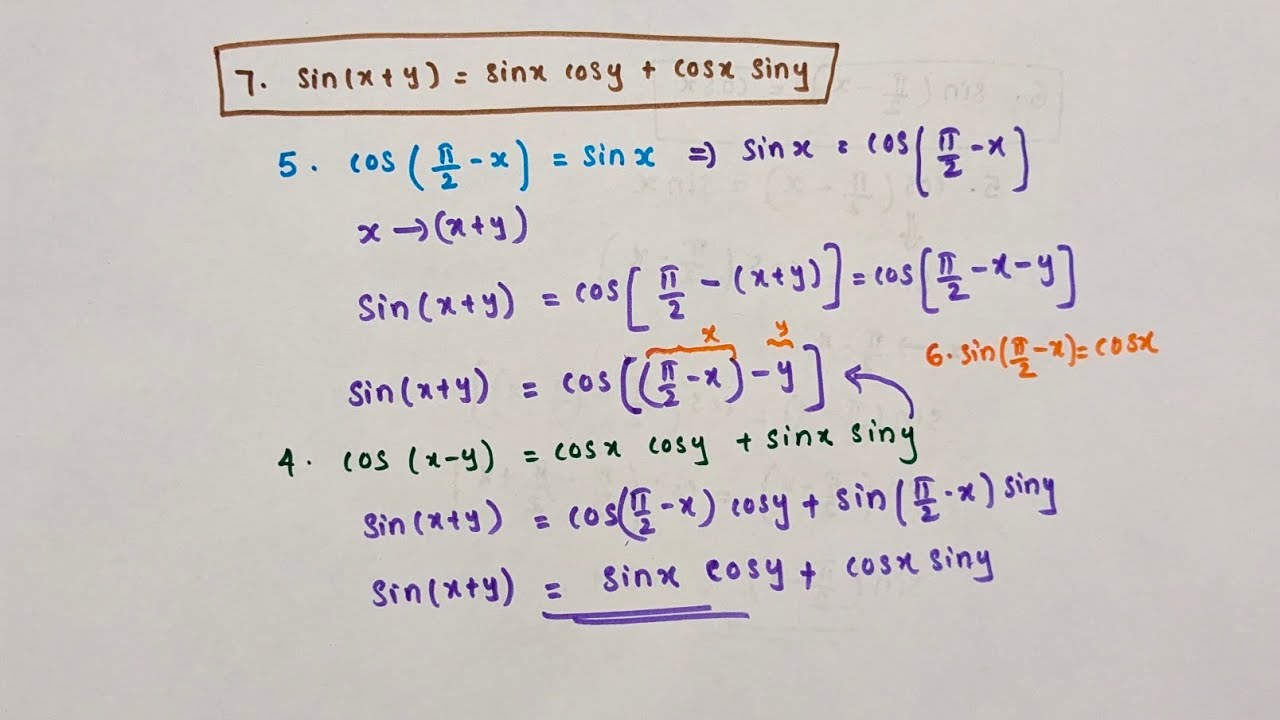 7. sin(x+y) = sinx cosy + cosx siny
5. cos(π/2 - x) = sinx ⇒ sinx = cos[π/2 - x]
x → (x+y)
sin(x+y) = cos[π/2 - (x+y)] = cos[π/2 - x - y]
x y
6. sin(π/2 - x) = cosx
sin(x+y) = cos[(π/2 - x) - y]
4. cos(x-y) = cosx cosy + sinx siny
sin(x+y) = cos(π/2 - x) cosy + sin(π/2 - x) siny
sin(x+y) = sinx cosy + cosx siny